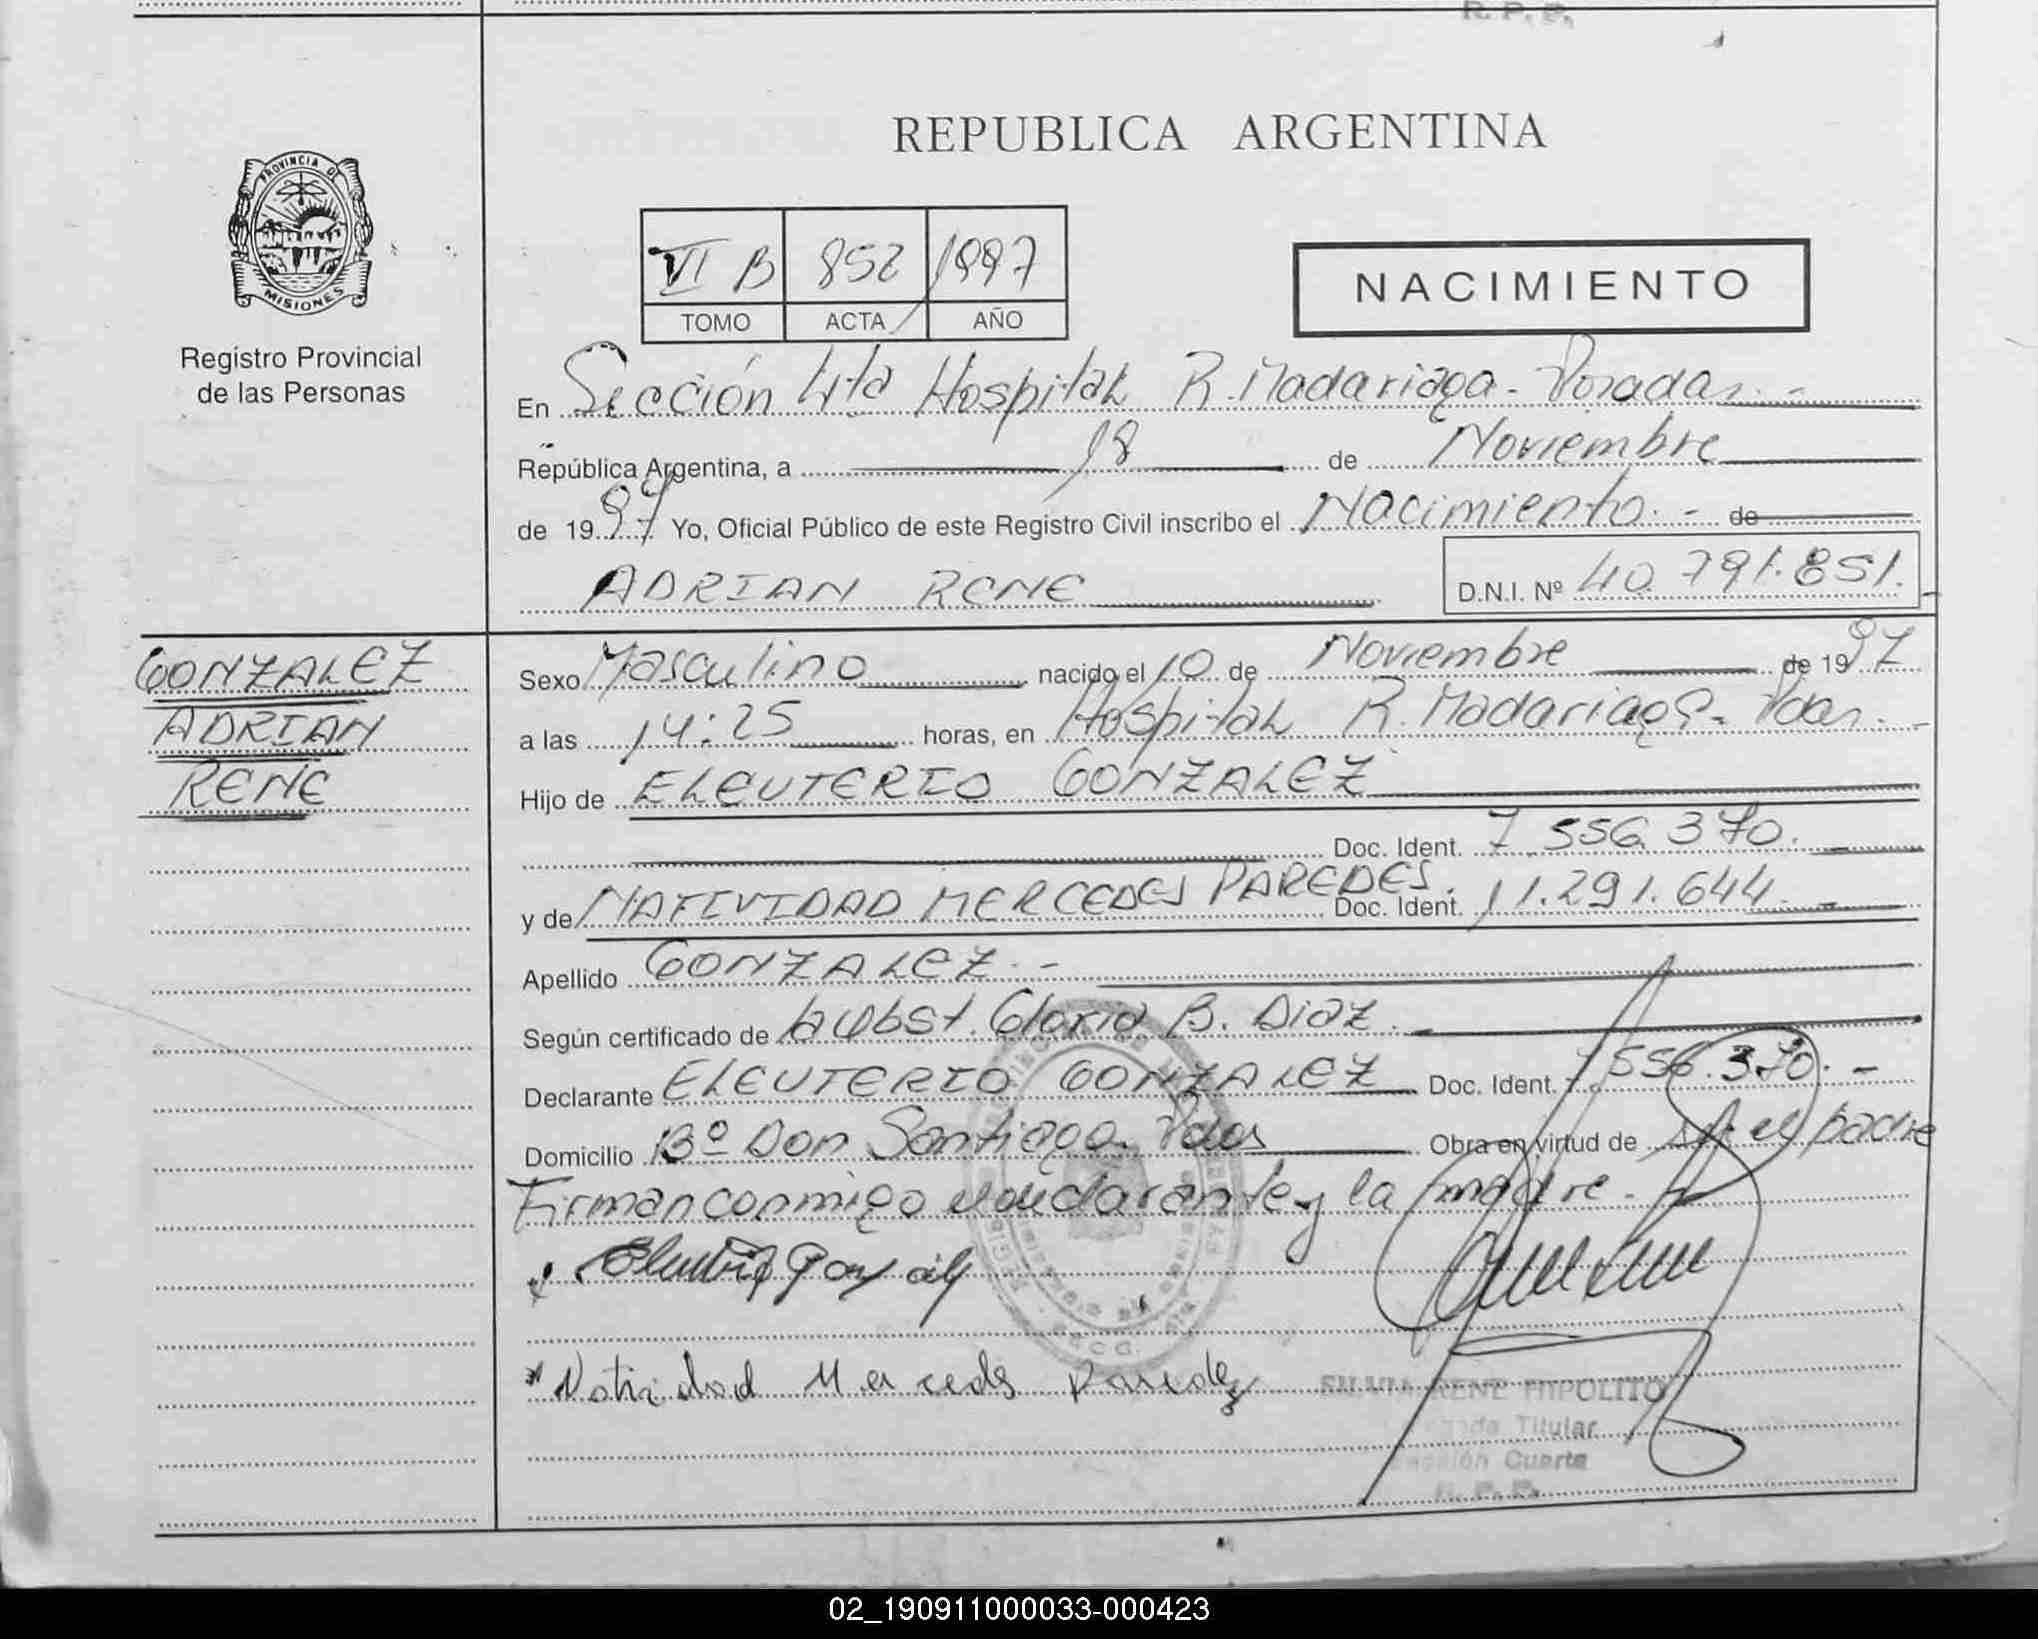 R. P. P.
PROVINCIA DE
MISIONES
Registro Provincial
de las Personas
REPUBLICA ARGENTINA
VI B 852 1997
TOMO ACTA AÑO
NACIMIENTO
En Sección 4ta Hospital R. Madariaga - Posadas. -
República Argentina, a 18 de Noviembre
de 1997 Yo, Oficial Público de este Registro Civil inscribo el Nacimiento. - de
ADRIAN RENE D.N.I. Nº 40.791.851. -
GONZALEZ
ADRIAN
RENE
Sexo Masculino nacido el 10 de Noviembre de 1997
a las 14:25 horas, en Hospital R. Madariaga - Pdas. -
Hijo de ELEUTERIO GONZALEZ
Doc. Ident. 7.556.370.
y de NATIVIDAD MERCEDES PAREDES. Doc. Ident. 11.291.644. -
Apellido GONZALEZ. -
Según certificado de Gloria B. Diaz.
Declarante ELEUTERIO GONZALEZ Doc. Ident. 7.556.370. -
Domicilio Bº Don Santiago. Pdas Obra en virtud de el padre
Firman conmigo el declarante y la madre. -
Natividad Mercedes Paredes
SILVIA RENE HIPOLITO
Titular
Sección Cuarta
R. P. P.
02_190911000033-000423